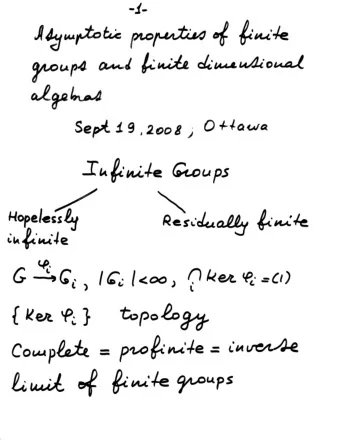 -1-
Asymptotic properties of finite
groups and finite dimensional
algebras
Sept 19, 2008, Ottawa
Infinite Groups
Hopelessly
infinite
Residually finite
G →^{φ_i} G_i, |G_i|<∞, ⋂_i Ker φ_i =(1)
{Ker φ_i} topology
Complete = profinite = inverse
limit of finite groups